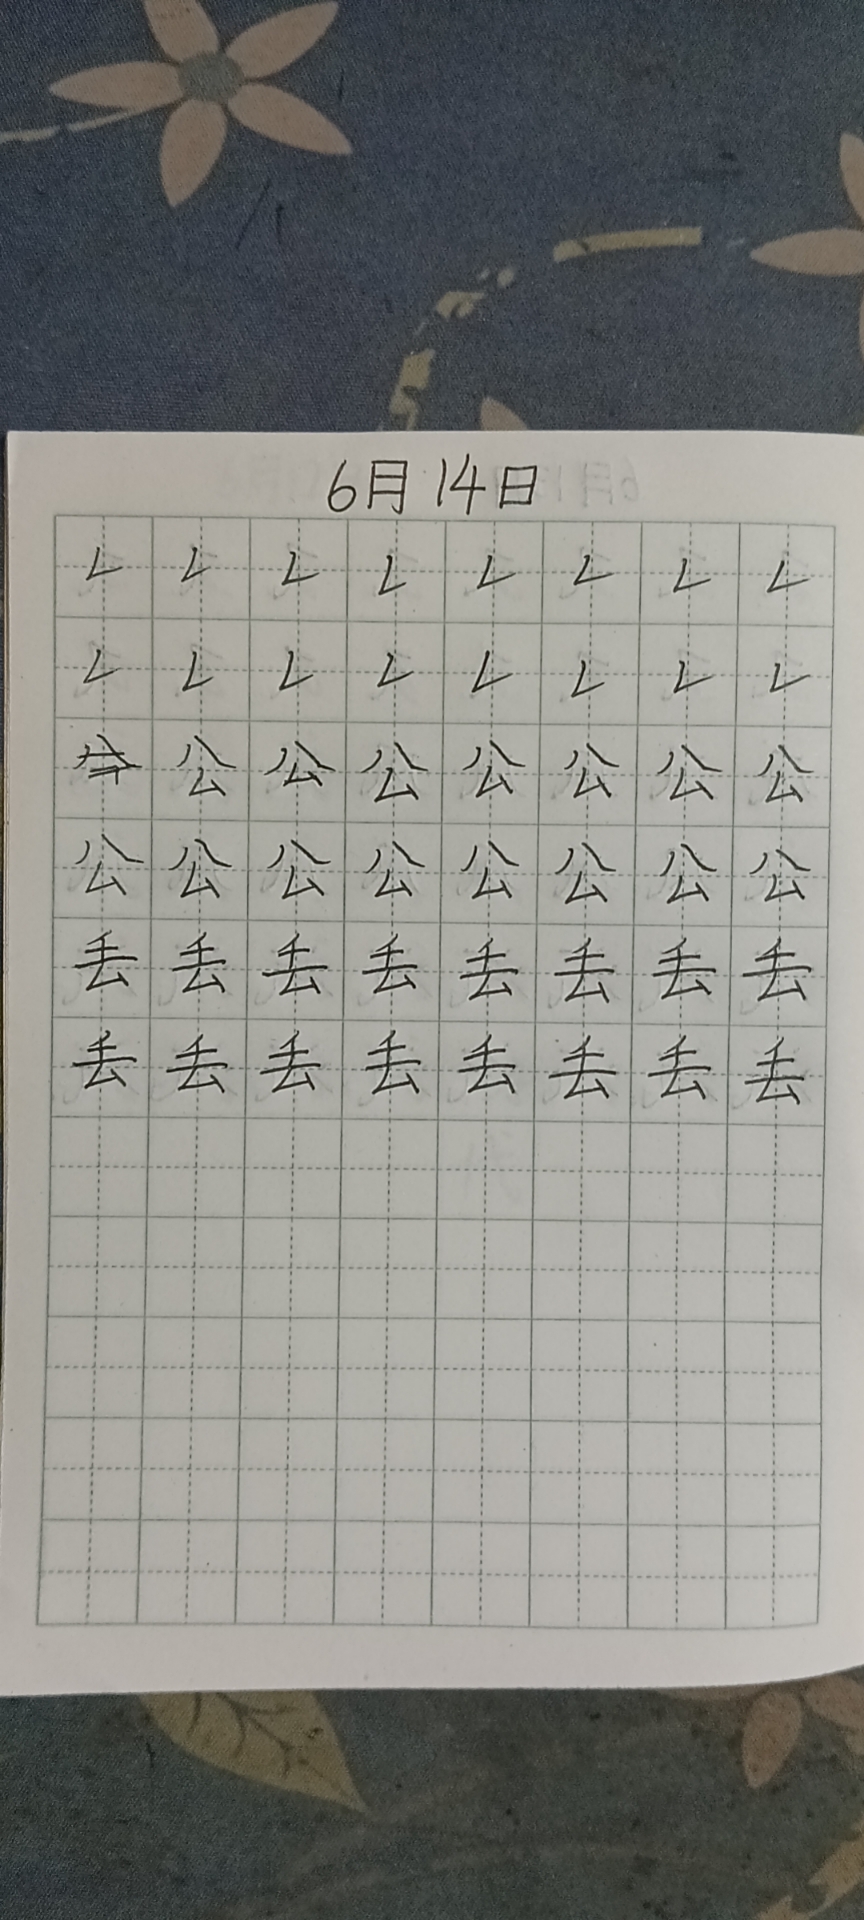 6月14日
𠃋 𠃋 𠃋 𠃋 𠃋 𠃋 𠃋 𠃋
𠃋 𠃋 𠃋 𠃋 𠃋 𠃋 𠃋 𠃋
公 公 公 公 公 公 公
公 公 公 公 公 公 公 公
丢 丢 丢 丢 丢 丢 丢 丢
丢 丢 丢 丢 丢 丢 丢 丢